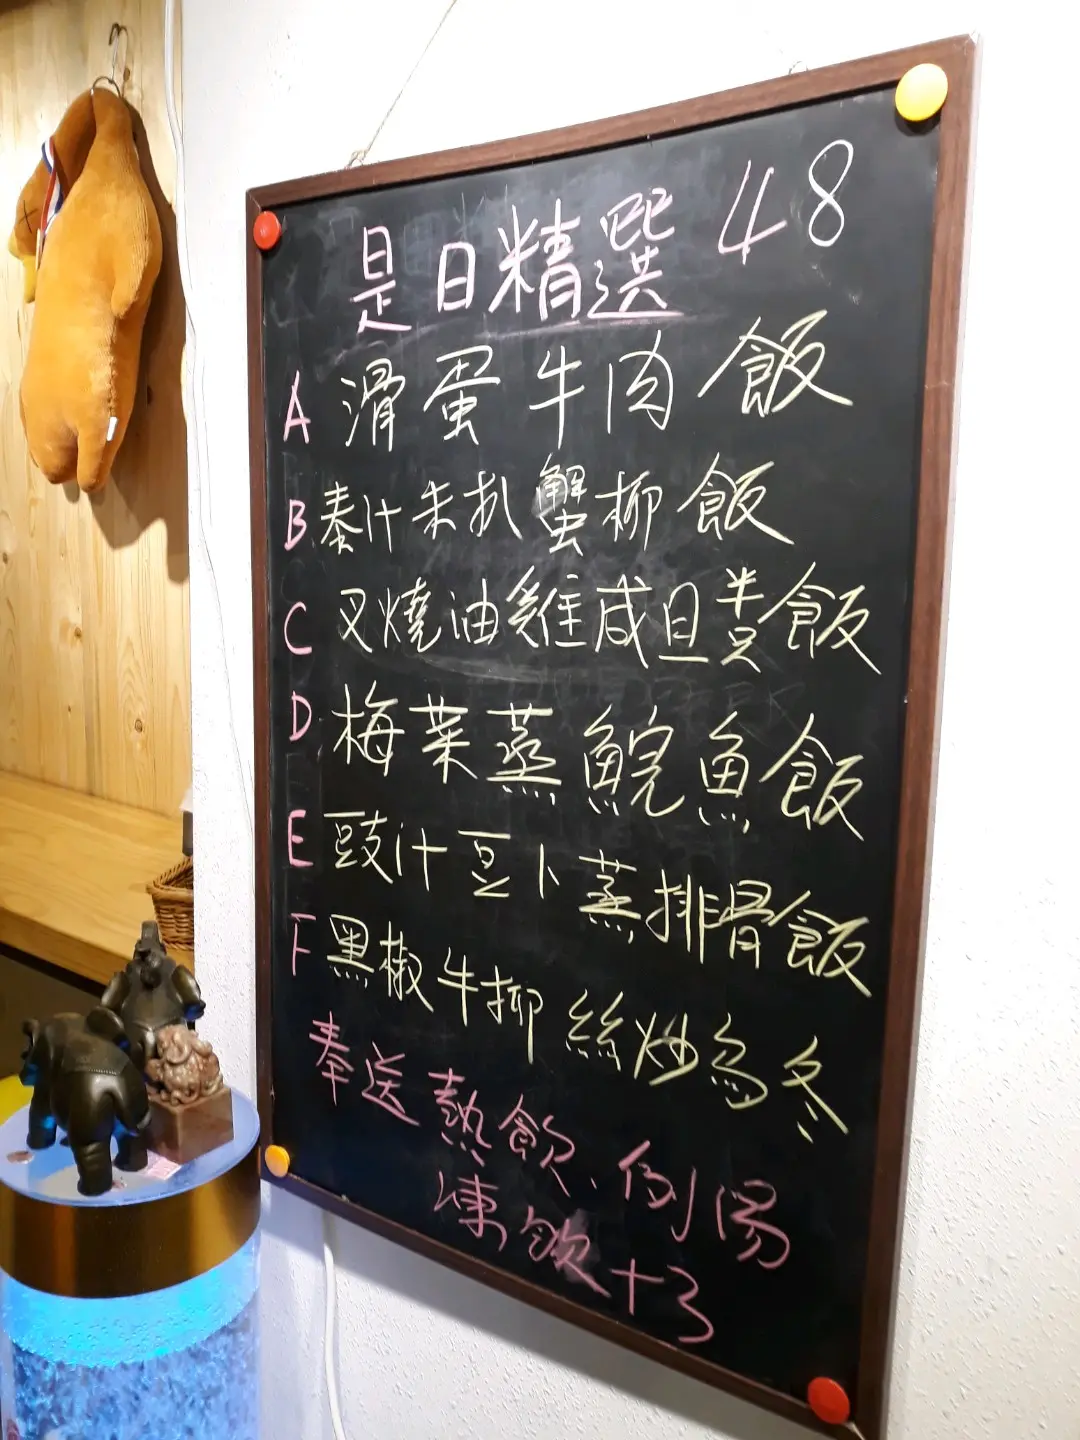 是日精選 48
A 滑蛋牛肉飯
B 秦汁朱扒蟹柳飯
C 叉燒油雞咸旦半只飯
D 梅菜蒸鯇魚飯
E 豉汁豆卜蒸排骨飯
F 黑椒牛柳絲炒烏冬
奉送熱飲、例湯
凍飲+3